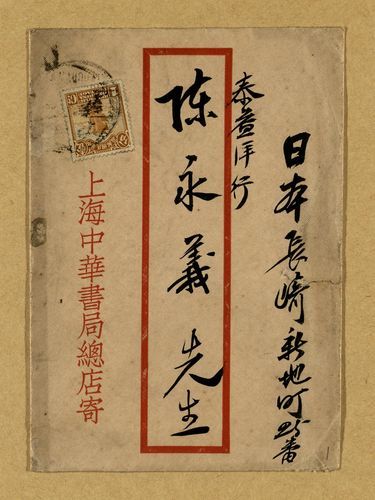 日本長崎新地町
番
泰益洋行
陈永義先生
上海中華書局總店寄